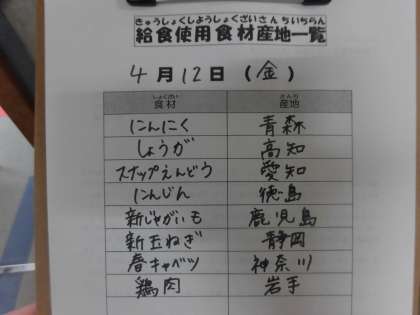 きゅうしょくしようしょくざいさんちいちらん
給食使用食材産地一覧
4月12日(金)
しょくざい さんち
食材 産地
にんにく 青森
しょうが 高知
スナップえんどう 愛知
にんじん 徳島
新じゃがいも 鹿児島
新玉ねぎ 静岡
春キャベツ 神奈川
鶏肉 岩手